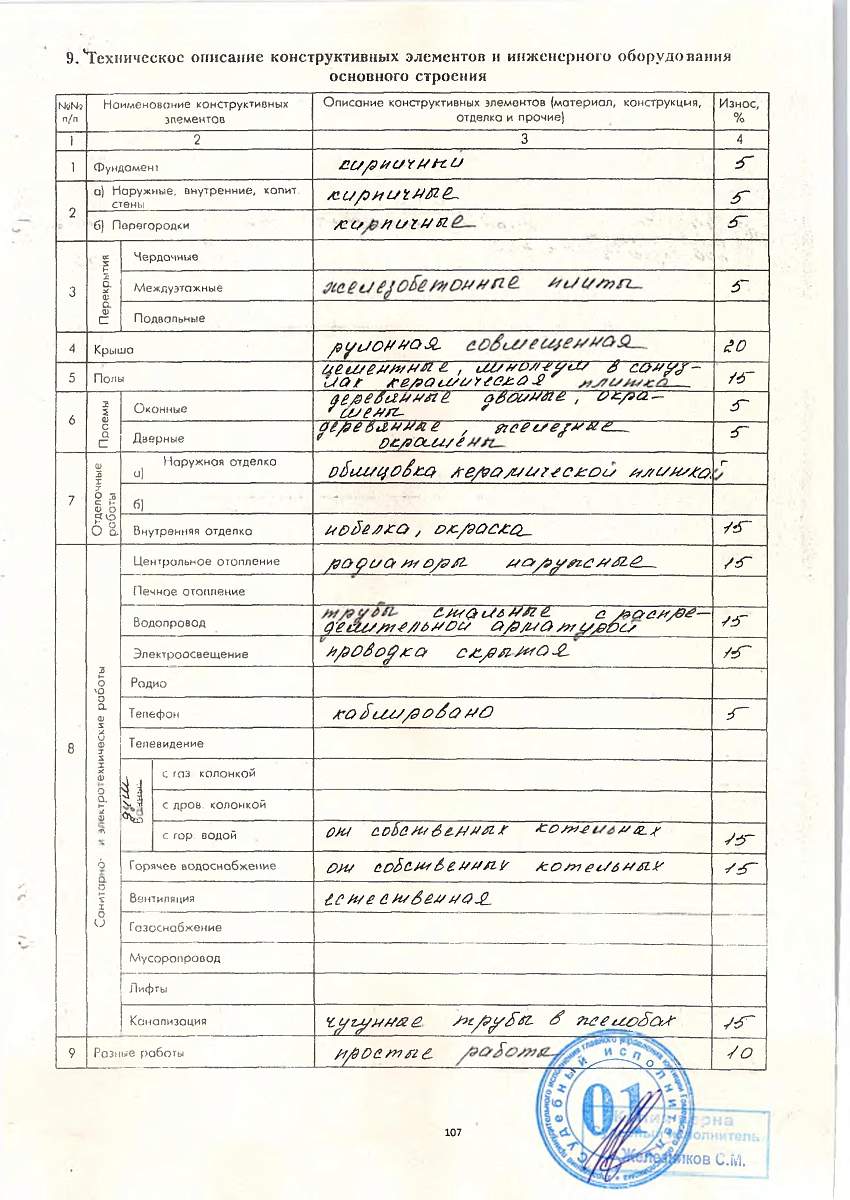 9. Техническое описание конструктивных элементов и инженерного оборудования
основного строения
№№ п/п
Наименование конструктивных элементов
Описание конструктивных элементов (материал, конструкция, отделка и прочие)
Износ, %
1 2 3 4
1 Фундамент кирпичный 5
2 а) Наружные, внутренние, капит. стены кирпичные 5
б) Перегородки кирпичные 5
3 Перекрытия
Чердачные
Междуэтажные железобетонные плиты 5
Подвальные
4 Крыша рулонная совмещенная 20
5 Полы цементные, линолеум в сануз-
лах керамическая плитка 15
6 Проемы
Оконные деревянные двойные, окра-
шены 5
Дверные деревянные, железные
окрашены 5
7 Отделочные работы
Наружная отделка
а) облицовка керамической плиткой
б)
Внутренняя отделка побелка, окраска 15
8 Санитарно- и электротехнические работы
Центральное отопление радиаторы наружные 15
Печное отопление
Водопровод трубы стальные с распре-
делительной арматурой 15
Электроосвещение проводка скрытая 15
Радио
Телефон каблировано 5
Телевидение
душ
Ванны:
с газ. колонкой
с дров. колонкой
с гор. водой от собственных котельных 15
Горячее водоснабжение от собственных котельных 15
Вентиляция естественная
Газоснабжение
Мусоропровод
Лифты
Канализация чугунные трубы в желобах 15
9 Разные работы простые работы 10
107
Судебный исполнитель
01
Железняков С.М.